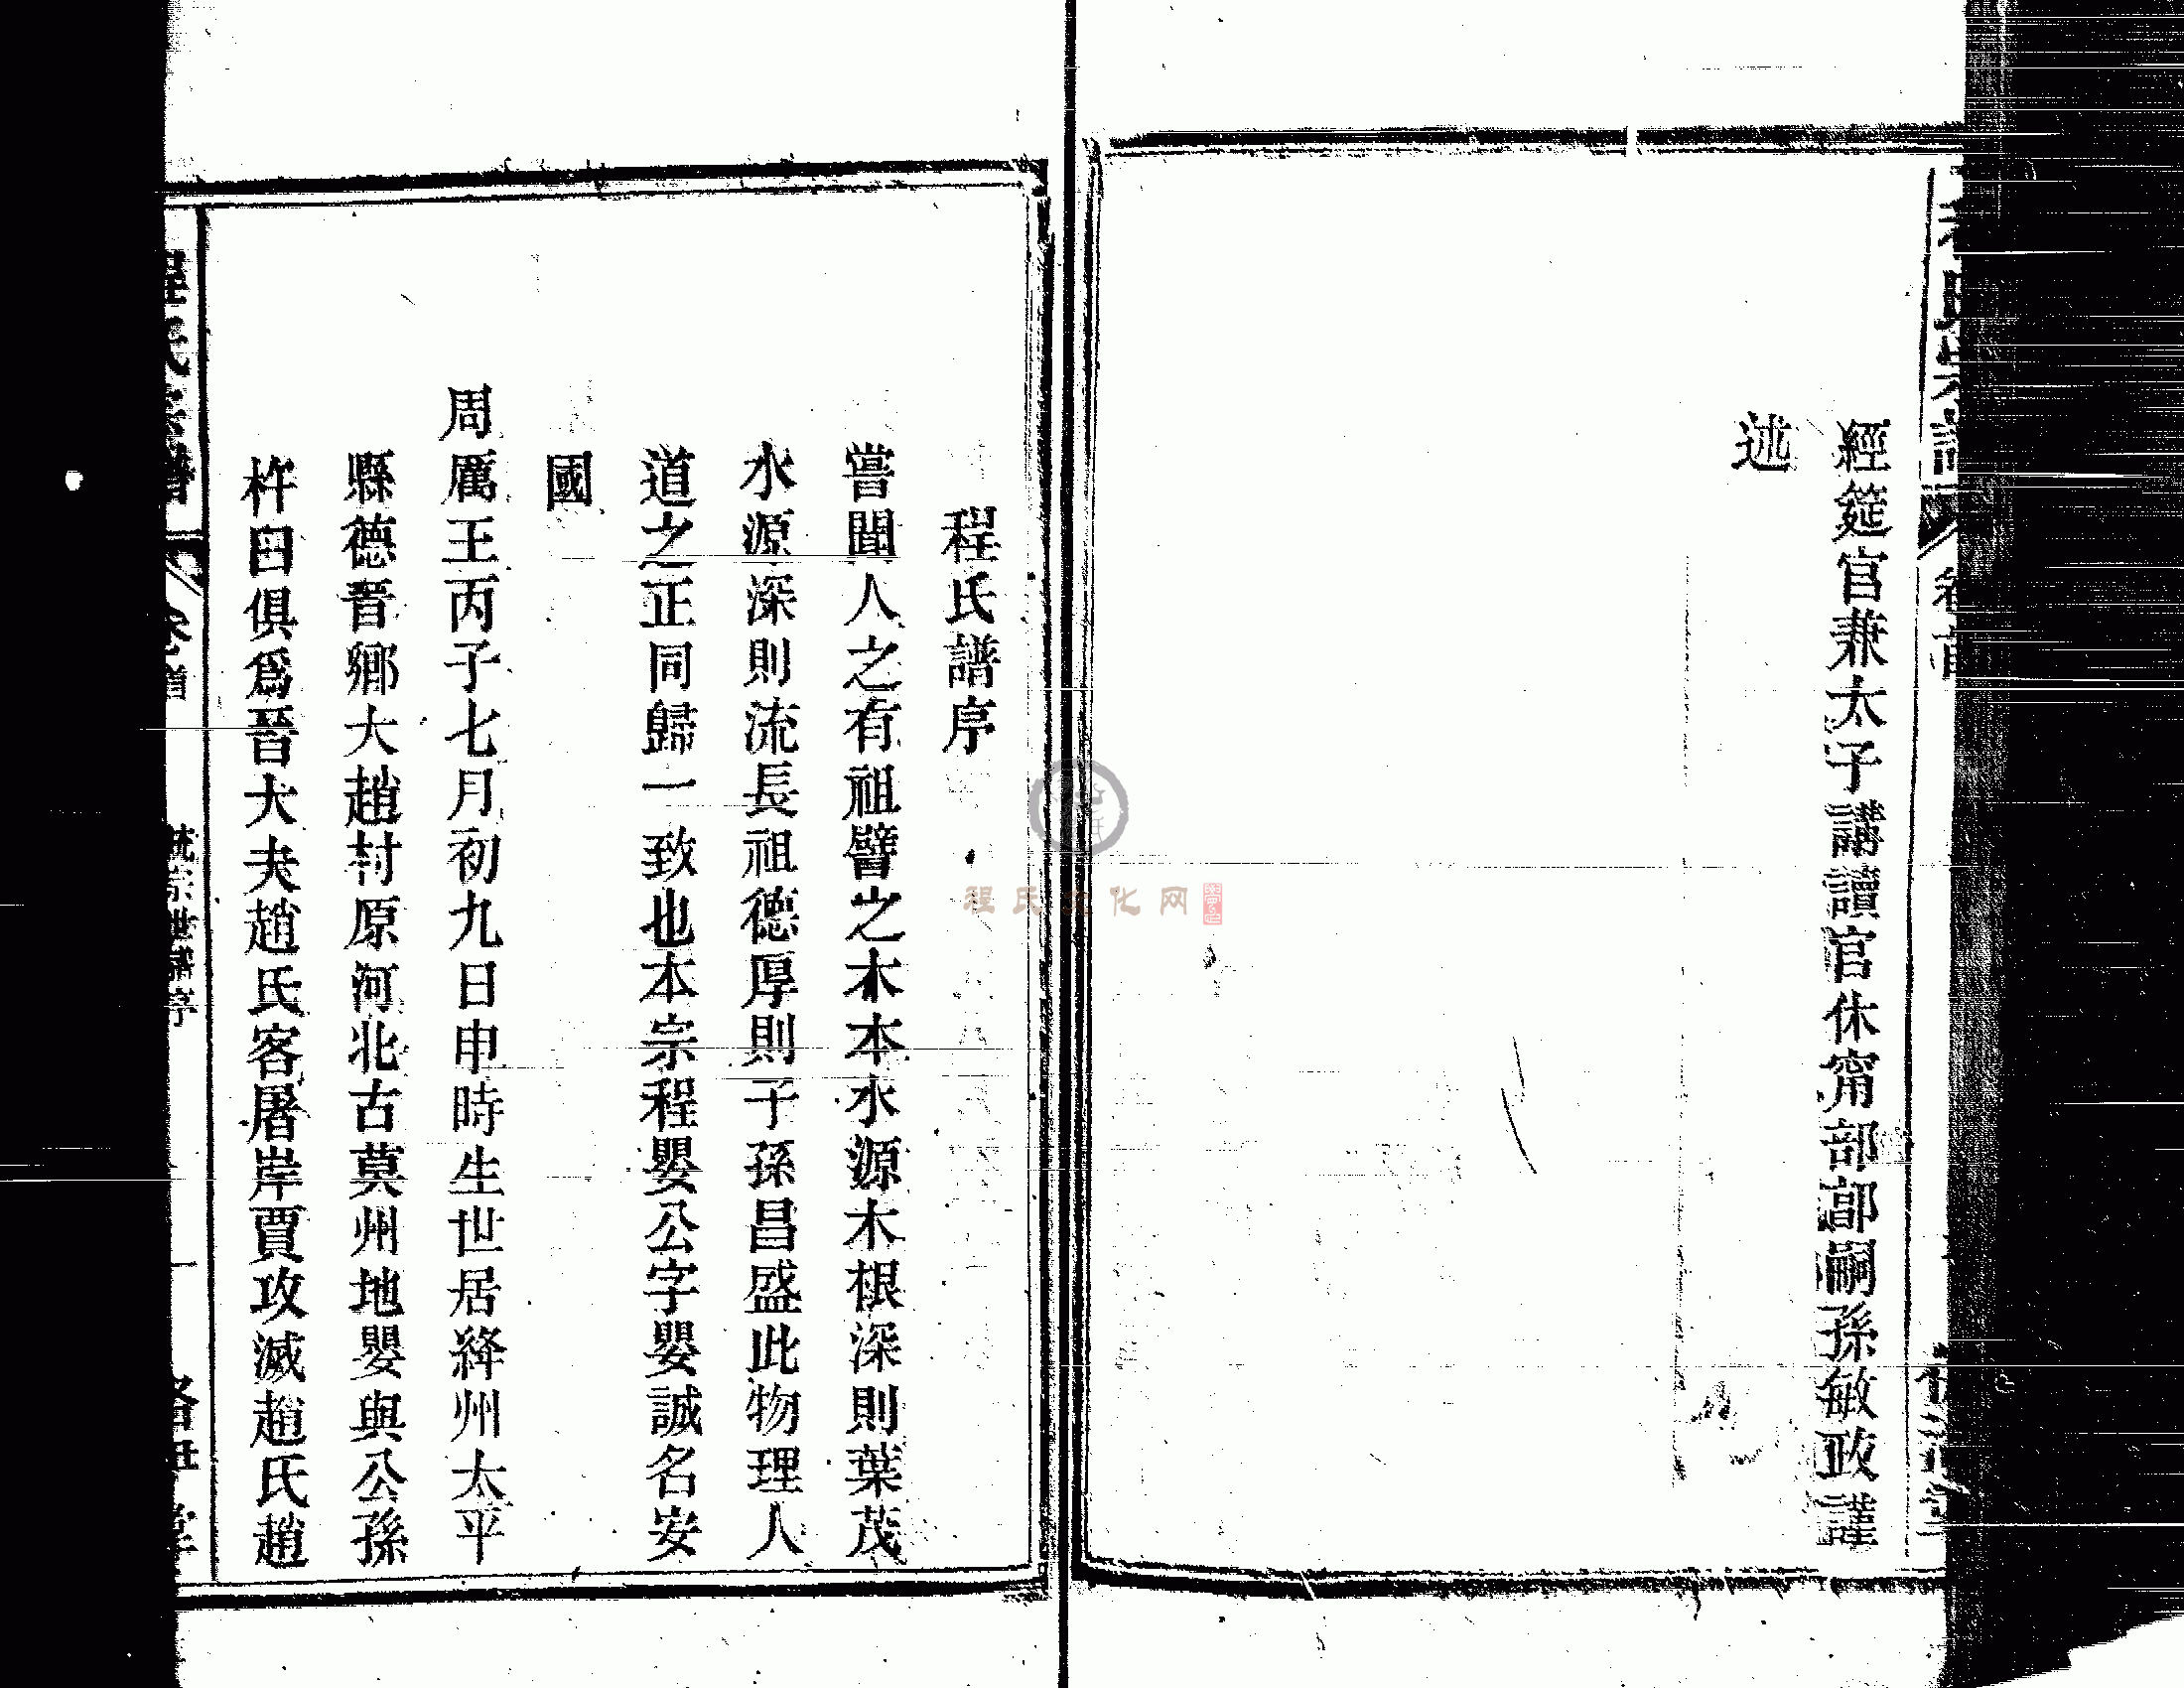 經筵官兼太子講讀官休甯部鄗嗣孫敏政謹
述
程氏譜序
嘗聞人之有祖譬之木本水源木根深則葉茂
水源深則流長祖德厚則子孫昌盛此物理人
道之正同歸一致也本宗程嬰公字嬰誠名安
國
周厲王丙子七月初九日申時生世居絳州太平
縣德晋鄉大趙村原河北古莫州地嬰與公孫
杵臼俱爲晋大夫趙氏客屠岸賈攻滅趙氏趙
程氏宗譜
卷首
統宗世譜序
一
程氏文化网